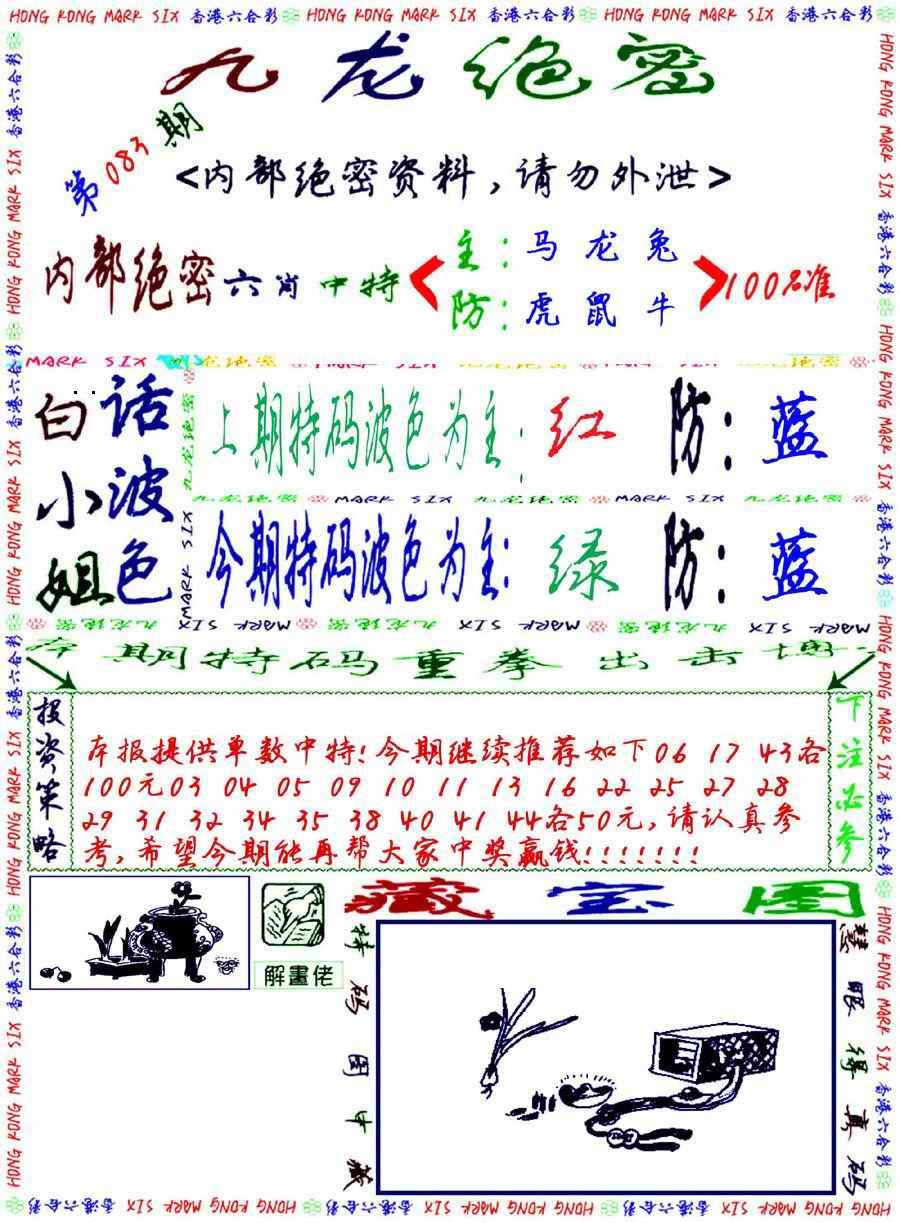 HONG KONG MARK SIX 香港六合彩 HONG KONG MARK SIX 香港六合彩 HONG KONG MARK SIX 香港六合彩
九龙绝密
第083期
<内部绝密资料,请勿外泄>
内部绝密六肖中特
主:马龙兔
防:虎鼠牛
100%准
白话
小波
姐色
上期特码波色为主:红 防:蓝
九龙绝密 MARK SIX 九龙绝密 MARK SIX 九龙绝密
今期特码波色为主:绿 防:蓝
本期特码重拳出击
投资策略
本报提供单数中特!今期继续推荐如下06 17 43各
100元03 04 05 09 10 11 13 16 22 25 27 28
29 31 32 34 35 38 40 41 44各50元,请认真参
考,希望今期能再帮大家中奖赢钱!!!!!!!
下注必参
藏宝图
解畫佬
特码图中藏
慧眼得真码
HONG KONG MARK SIX 香港六合彩 HONG KONG MARK SIX 香港六合彩 HONG KONG MARK SIX 香港六合彩